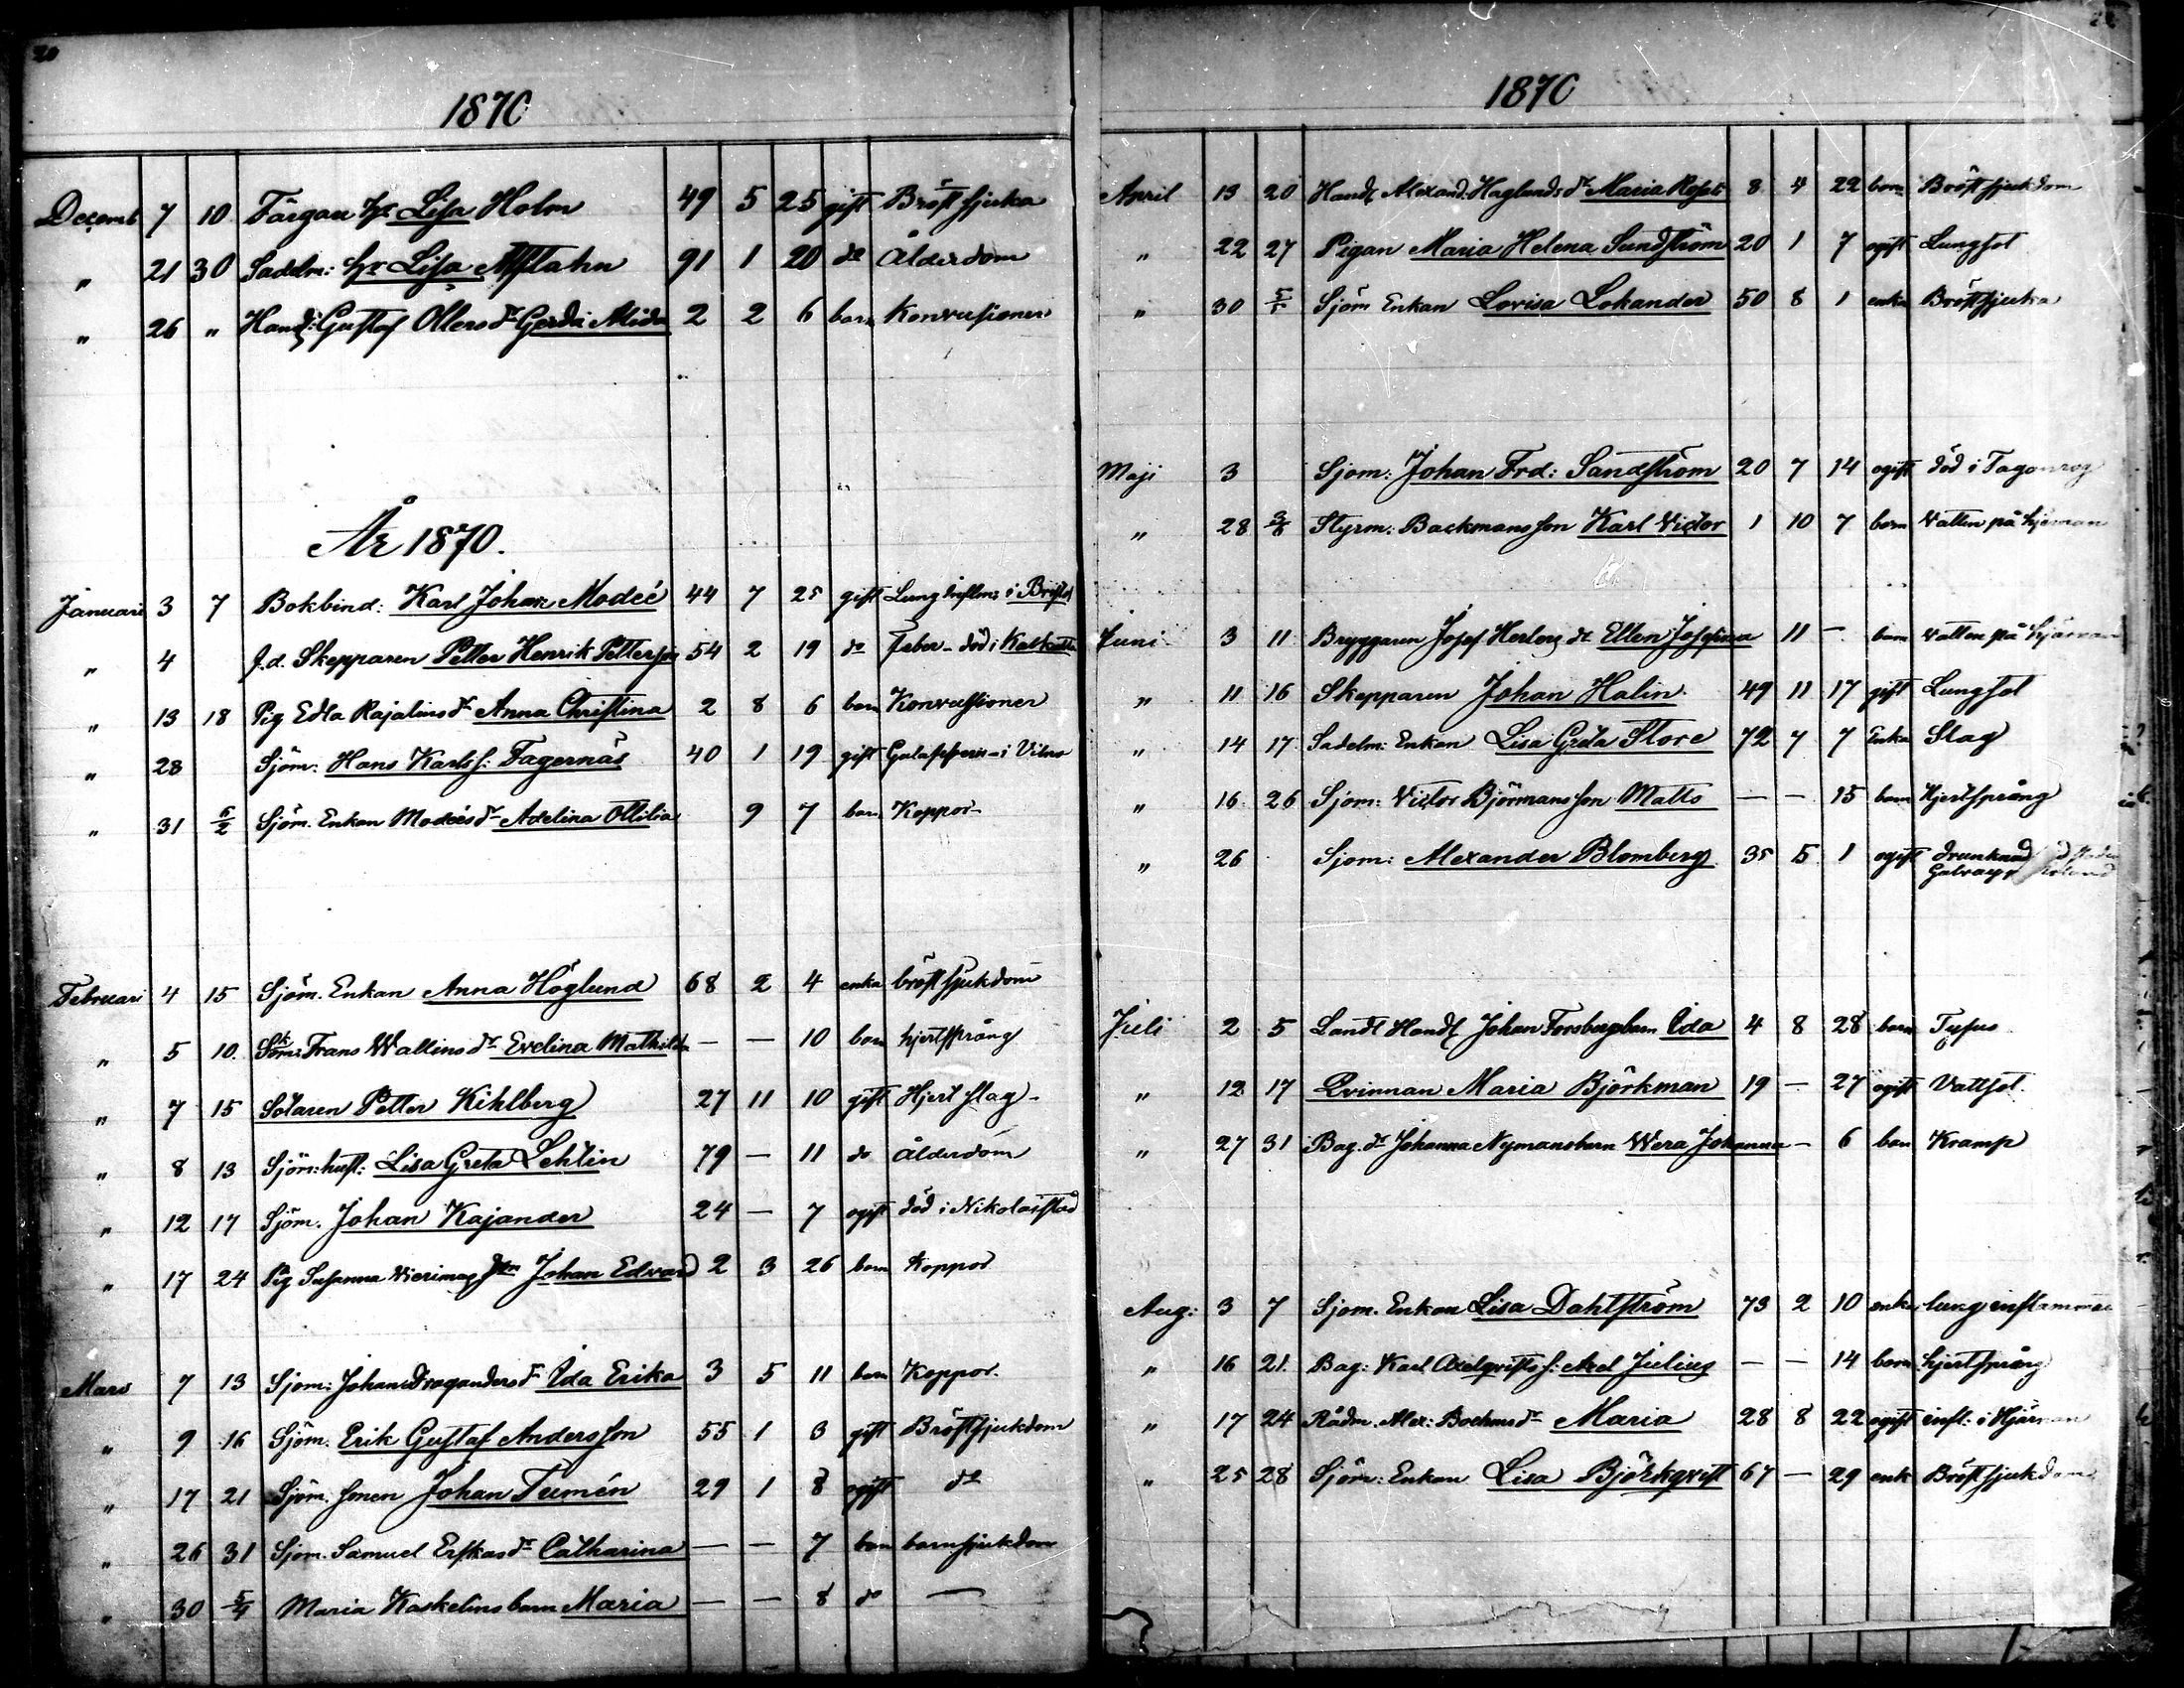 20
1870
Decemb 7 10 Färgar h: Lisa Holm 49 5 25 gift Bröstsjuka
" 21 30 Sadelm: h: Lisa 91 1 20 do Ålderdom
" 26 " Handl: Gustaf Ollers dr Gerda Alida 2 2 6 barn Konvulsioner
År 1870.
Januari 3 7 Bokbind: Karl Johan Modeé 44 7 25 gift Lunginflm: i Bristol
" 4 f.d. Skepparen Petter Henrik Petterson 54 2 19 do Feber - död i Kalkutta
" 13 18 Pig Edla Rajalins dr Anna Christina 2 8 6 barn Konvulsioner
" 28 Sjöm: Hans Karlss: Fagernäs 40 1 19 gift i
" 31 6/2 Sjöm. Enkan Modeés dr Adelina Ottilia 9 7 barn Koppor
Februari 4 15 Sjöm. Enkan Anna Höglund 68 2 4 enka bröstsjukdom
" 5 10 Frans Wallins dr Evelina Mathilda — — 10 barn hjertsprång
" 7 15 Sotaren Petter Kihlberg 27 11 10 gift Hjertslag
" 8 13 Sjöm: hust: Lisa Greta Lehtin 79 — 11 do Ålderdom
" 12 17 Sjöm. Johan Kajander 24 — 7 ogift död i Nikolaistad
" 17 24 Pig Susanna Johan Edvard 2 3 26 barn Koppor
Mars 7 13 Sjöm: Johan Draganders dr Ida Erika 3 5 11 barn Koppor.
" 9 16 Sjöm. Erik Gustaf Andersson 55 1 3 gift Bröstsjukdom
" 17 21 Sjöm. sonen Johan Tumén 29 1 8 ogift do
" 26 31 Sjöm. Samuel Erskas dr Catharina — — 7 barn barnsjukdom
" 30 5/4 Maria Kaskelins barn Maria — — 8 do —
1870
April 13 20 Handl Alexand. Haglunds dr Maria 8 4 22 barn Bröstsjukdom
" 22 27 Pigan Maria Helena Sundström 20 1 7 ogift Lungsot
" 30 5/5 Sjöm Enkan Lovisa Lokander 50 8 1 enka Bröstsjuka
Maji 3 Sjöm: Johan Frd: Sandström 20 7 14 ogift död i Taganrog
" 28 3/6 Styrm: Backmans son Karl Victor 1 10 7 barn Vatten på hjernan
Juni 3 11 Bryggaren Josef Herlers dr Ellen Josefina 11 — barn vatten på hjärnan
" 11 16 Skepparen Johan Halin 49 11 17 gift Lungsot
" 14 17 Sadelm: Enkan Lisa Greta Store 72 7 7 Enka Slag
" 16 26 Sjöm: Victor Björmans son Matts — — 15 barn Hjertsprång
" 26 Sjöm: Alexander Blomberg 35 5 1 ogift drunknad
Juli 2 5 Landt Handl Johan Forsbergs barn Ida 4 8 28 barn Tyfus
" 12 17 Qvinnan Maria Björkman 19 — 27 ogift Vattsot.
" 27 31 Bag. dr Johanna Nymans barn Wera Johanna — 6 barn Kramp
Aug: 3 7 Sjöm. Enkan Lisa Dahlström 73 2 10 enka lunginflamma
" 16 21 Bag: Karl Axelqvists s: Axel Julius — — 14 barn hjertsprång
" 17 24 Rådm. Alex: Boehms dr Maria 28 8 22 ogift infl: i Hjärnan
" 25 28 Sjöm: Enkan Lisa Björkqvist 67 — 29 enk Bröstsjukdom